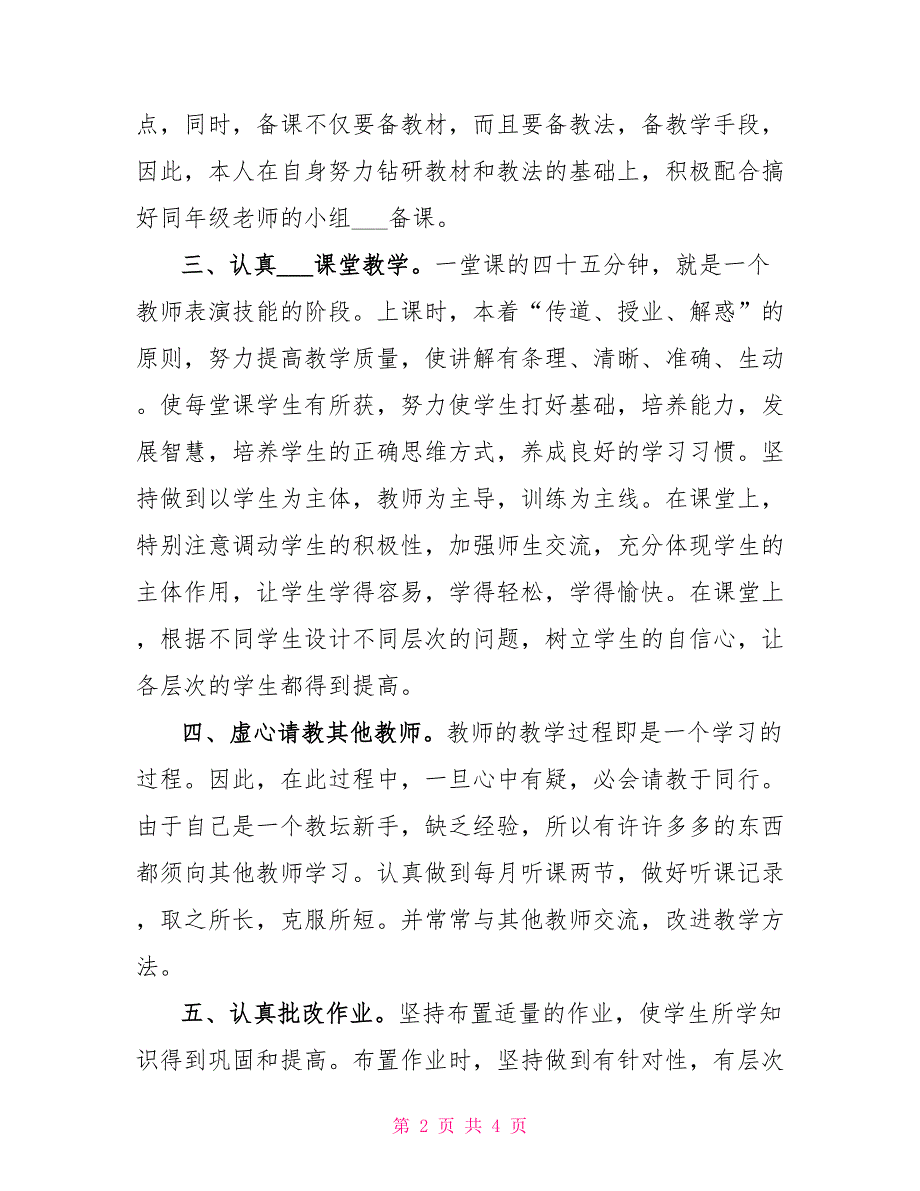 点，同时，备课不仅要备教材，而且要备教法，备教学手段，
因此，本人在自身努力钻研教材和教法的基础上，积极配合搞
好同年级老师的小组___备课。
三、认真___课堂教学。一堂课的四十五分钟，就是一个
教师表演技能的阶段。上课时，本着“传道、授业、解惑”的
原则，努力提高教学质量，使讲解有条理、清晰、准确、生动
。使每堂课学生有所获，努力使学生打好基础，培养能力，发
展智慧，培养学生的正确思维方式，养成良好的学习习惯。坚
持做到以学生为主体，教师为主导，训练为主线。在课堂上，
特别注意调动学生的积极性，加强师生交流，充分体现学生的
主体作用，让学生学得容易，学得轻松，学得愉快。在课堂上
，根据不同学生设计不同层次的问题，树立学生的自信心，让
各层次的学生都得到提高。
四、虚心请教其他教师。教师的教学过程即是一个学习的
过程。因此，在此过程中，一旦心中有疑，必会请教于同行。
由于自己是一个教坛新手，缺乏经验，所以有许许多多的东西
都须向其他教师学习。认真做到每月听课两节，做好听课记录
，取之所长，克服所短。并常常与其他教师交流，改进教学方
法。
五、认真批改作业。坚持布置适量的作业，使学生所学知
识得到巩固和提高。布置作业时，坚持做到有针对性，有层次
第 2 页 共 4 页